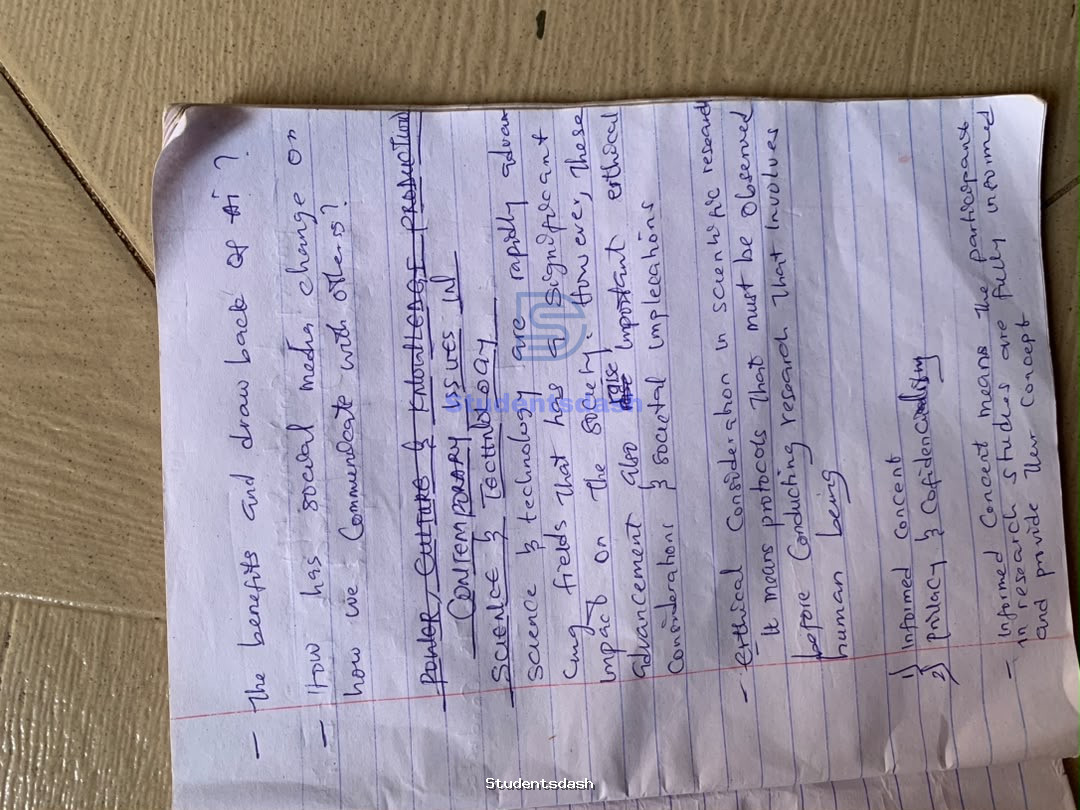 - The benefits and draw back of Ai?
- How has social media change on
how we Communicate with others?
POWER, CULTURE & KNOWLEDGE PRODUCTION
CONTEMPORARY ISSUES IN
SCIENCE & TECHNOLOGY
Science & technology are rapidly advan
cing fields that has a significant
impact on the society. However, these
advancement also raise important erthical
Considerations & societal implecations
- erthical Consideration in scientific research
It means protocols that must be observed
before Conducting research that involves
human being
1) Informed concent
2) privacy & Cofidenciality
- informed Concent means the participants
in research studies are fully informed
and provide their concept
Studentsdash
Studentsdash